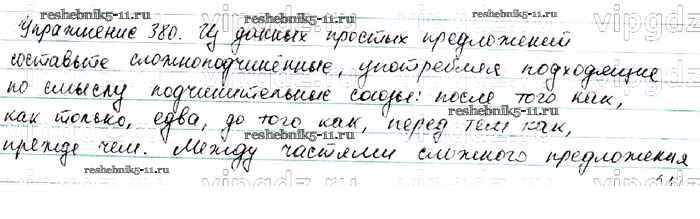 reshebnik5-11.ru
reshebnik5-11.ru
Упражнение 380. Из данных простых предложений
составьте сложноподчинённые, употребляя подходящие
по смыслу подчинительные союзы: после того как,
reshebnik5-11.ru
как только, едва, до того как, перед тем как,
reshebnik5-11.ru
прежде чем. Между частями сложного предложения
reshebnik5-11.ru
reshebnik5-11.ru
vipgdz